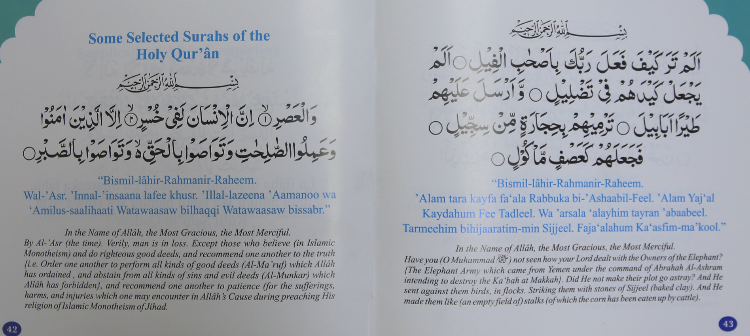 Some Selected Surahs of the
Holy Qur'ân
بِسْمِ اللهِ الرَّحْمٰنِ الرَّحِيْمِ
وَالْعَصْرِ ۝١ اِنَّ الْاِنْسَانَ لَفِيْ خُسْرٍ ۝٢ اِلَّا الَّذِيْنَ اٰمَنُوْا
وَعَمِلُوا الصّٰلِحٰتِ وَتَوَاصَوْا بِالْحَقِّ ۙ وَتَوَاصَوْا بِالصَّبْرِ ۝
"Bismil-lâhir-Rahmanir-Raheem.
Wal-'Asr. 'Innal-'insaana lafee khusr. 'Illal-lazeena 'Aamanoo wa
'Amilus-saalihaati Watawaasaw bilhaqqi Watawaasaw bissabr."
In the Name of Allâh, the Most Gracious, the Most Merciful.
By Al-'Asr (the time). Verily, man is in loss. Except those who believe (in Islamic
Monotheism) and do righteous good deeds, and recommend one another to the truth
[i.e. Order one another to perform all kinds of good deeds (Al-Ma'ruf) which Allâh
has ordained , and abstain from all kinds of sins and evil deeds (Al-Munkar) which
Allâh has forbidden], and recommend one another to patience (for the sufferings,
harms, and injuries which one may encounter in Allâh's Cause during preaching His
religion of Islamic Monotheism of Jihad.
42
بِسْمِ اللهِ الرَّحْمٰنِ الرَّحِيْمِ
اَلَمْ تَرَ كَيْفَ فَعَلَ رَبُّكَ بِاَصْحٰبِ الْفِيْلِ ۝ اَلَمْ
يَجْعَلْ كَيْدَهُمْ فِيْ تَضْلِيْلٍ ۝ وَّاَرْسَلَ عَلَيْهِمْ
طَيْرًا اَبَابِيْلَ ۝ تَرْمِيْهِمْ بِحِجَارَةٍ مِّنْ سِجِّيْلٍ ۝
فَجَعَلَهُمْ كَعَصْفٍ مَّاْكُوْلٍ ۝
"Bismil-lâhir-Rahmanir-Raheem.
'Alam tara kayfa fa'ala Rabbuka bi-'Ashaabil-Feel. 'Alam Yaj'al
Kaydahum Fee Tadleel. Wa 'arsala 'alayhim tayran 'abaabeel.
Tarmeehim bihijaaratim-min Sijjeel. Faja'alahum Ka'asfim-ma'kool."
In the Name of Allâh, the Most Gracious, the Most Merciful.
Have you (O Muhammad ﷺ) not seen how your Lord dealt with the Owners of the Elephant?
{The Elephant Army which came from Yemen under the command of Abrahah Al-Ashram
intending to destroy the Ka'bah at Makkah}. Did He not make their plot go astray? And He
sent against them birds, in flocks. Striking them with stones of Sijjeel (baked clay). And He
made them like (an empty field of) stalks (of which the corn has been eaten up by cattle).
43